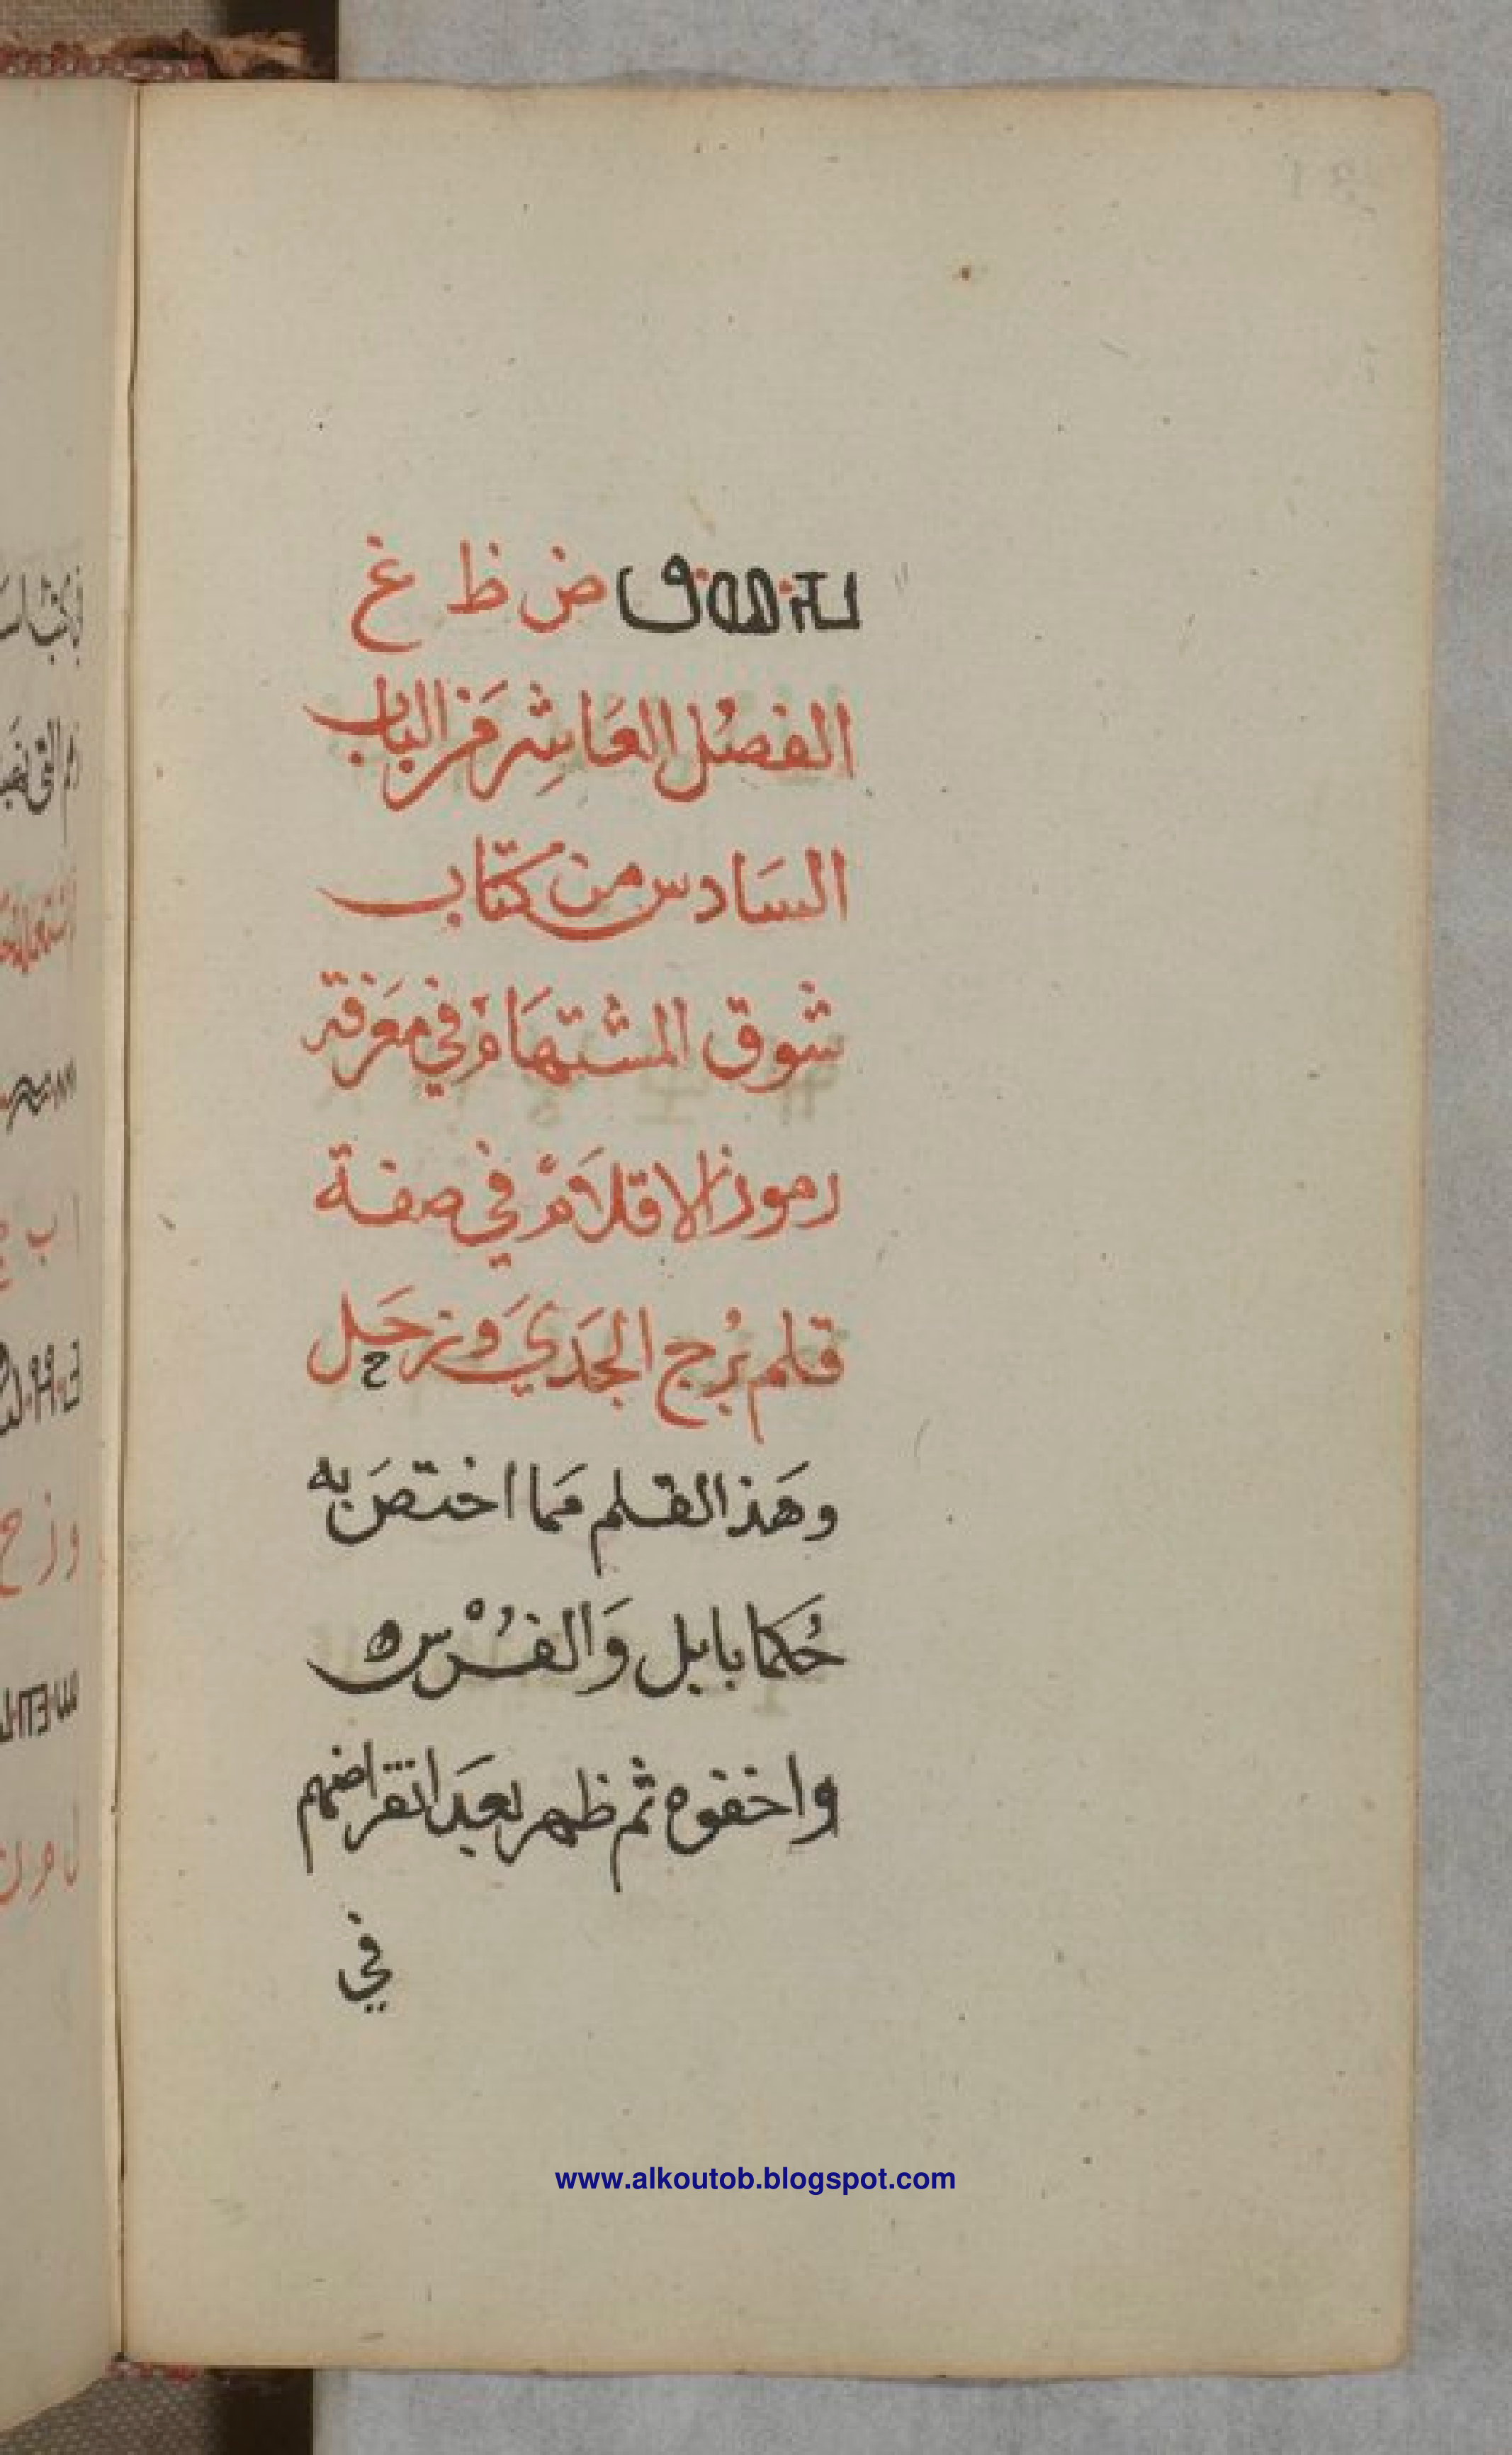 ض ظ غ
الفصْل العَاشِر مَن الباب
السَادس من كتاب
شوق المشتهَامْ في معَرفة
رموز الاقلَامْ في صفة
قلم بُرج الجَدَي وَزحَل
وهَذ القلم مَما اختصَ به
حُكما بابل وَالفُرْس
واخفوه ثم ظهر بعَد انقراضهم
في
www.alkoutob.blogspot.com